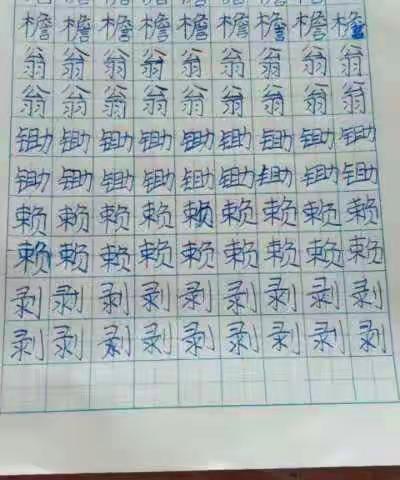 檐檐檐檐檐檐檐檐檐
翁翁翁翁翁翁翁翁翁
翁翁翁翁翁翁翁翁翁
锄锄锄锄锄锄锄锄锄
锄锄锄锄锄锄锄锄锄
赖赖赖赖赖赖赖赖赖
赖赖赖赖赖赖赖赖赖
剥剥剥剥剥剥剥剥剥
剥剥剥剥剥剥剥剥剥